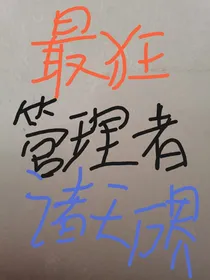 最狂
管理者
诸天限